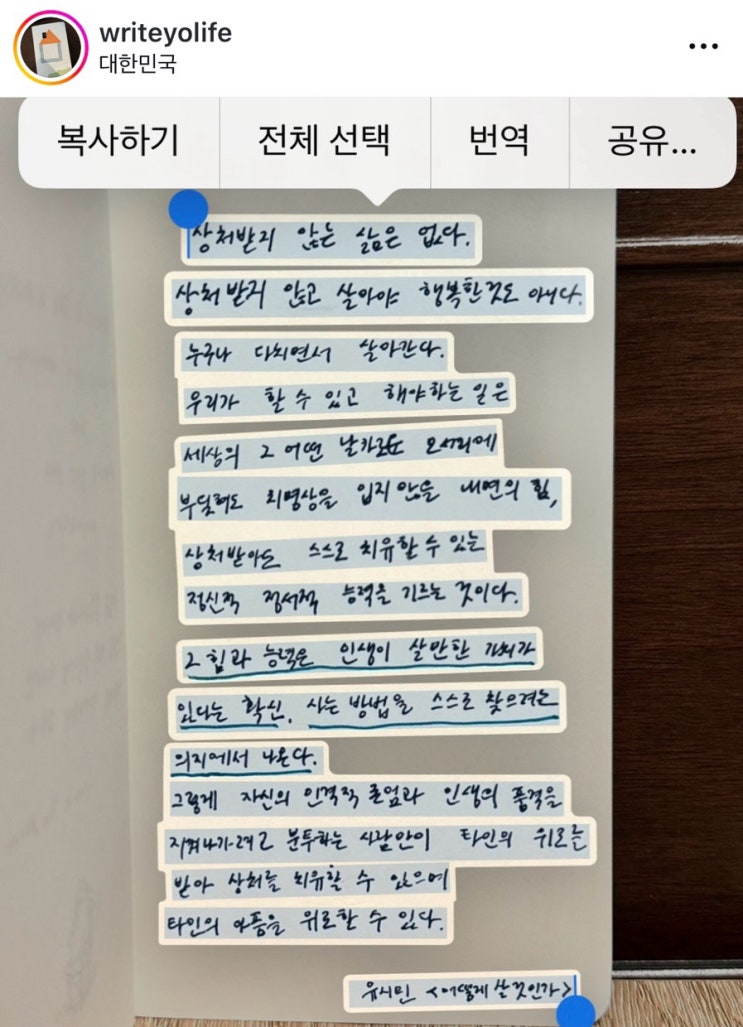 writeyolife
대한민국
복사하기 전체 선택 번역 공유...
상처받지 않는 삶은 없다.
상처받지 않고 살아야 행복한것도 아니다.
누구나 다치면서 살아간다.
우리가 할 수 있고 해야하는 일은
세상의 그 어떤 날카로운 모서리에
부딪혀도 치명상을 입지 않을 내면의 힘,
상처받아도 스스로 치유할 수 있는
정신적 정서적 능력을 기르는 것이다.
그 힘과 능력은 인생이 살만한 가치가
있다는 확신, 사는 방법을 스스로 찾으려는
의지에서 나온다.
그렇게 자신의 인격적 존엄과 인생의 품격을
지켜나가려고 분투하는 사람만이 타인의 위로를
받아 상처를 치유할 수 있으며
타인의 아픔을 위로할 수 있다.
유시민 <어떻게 살 것인가>